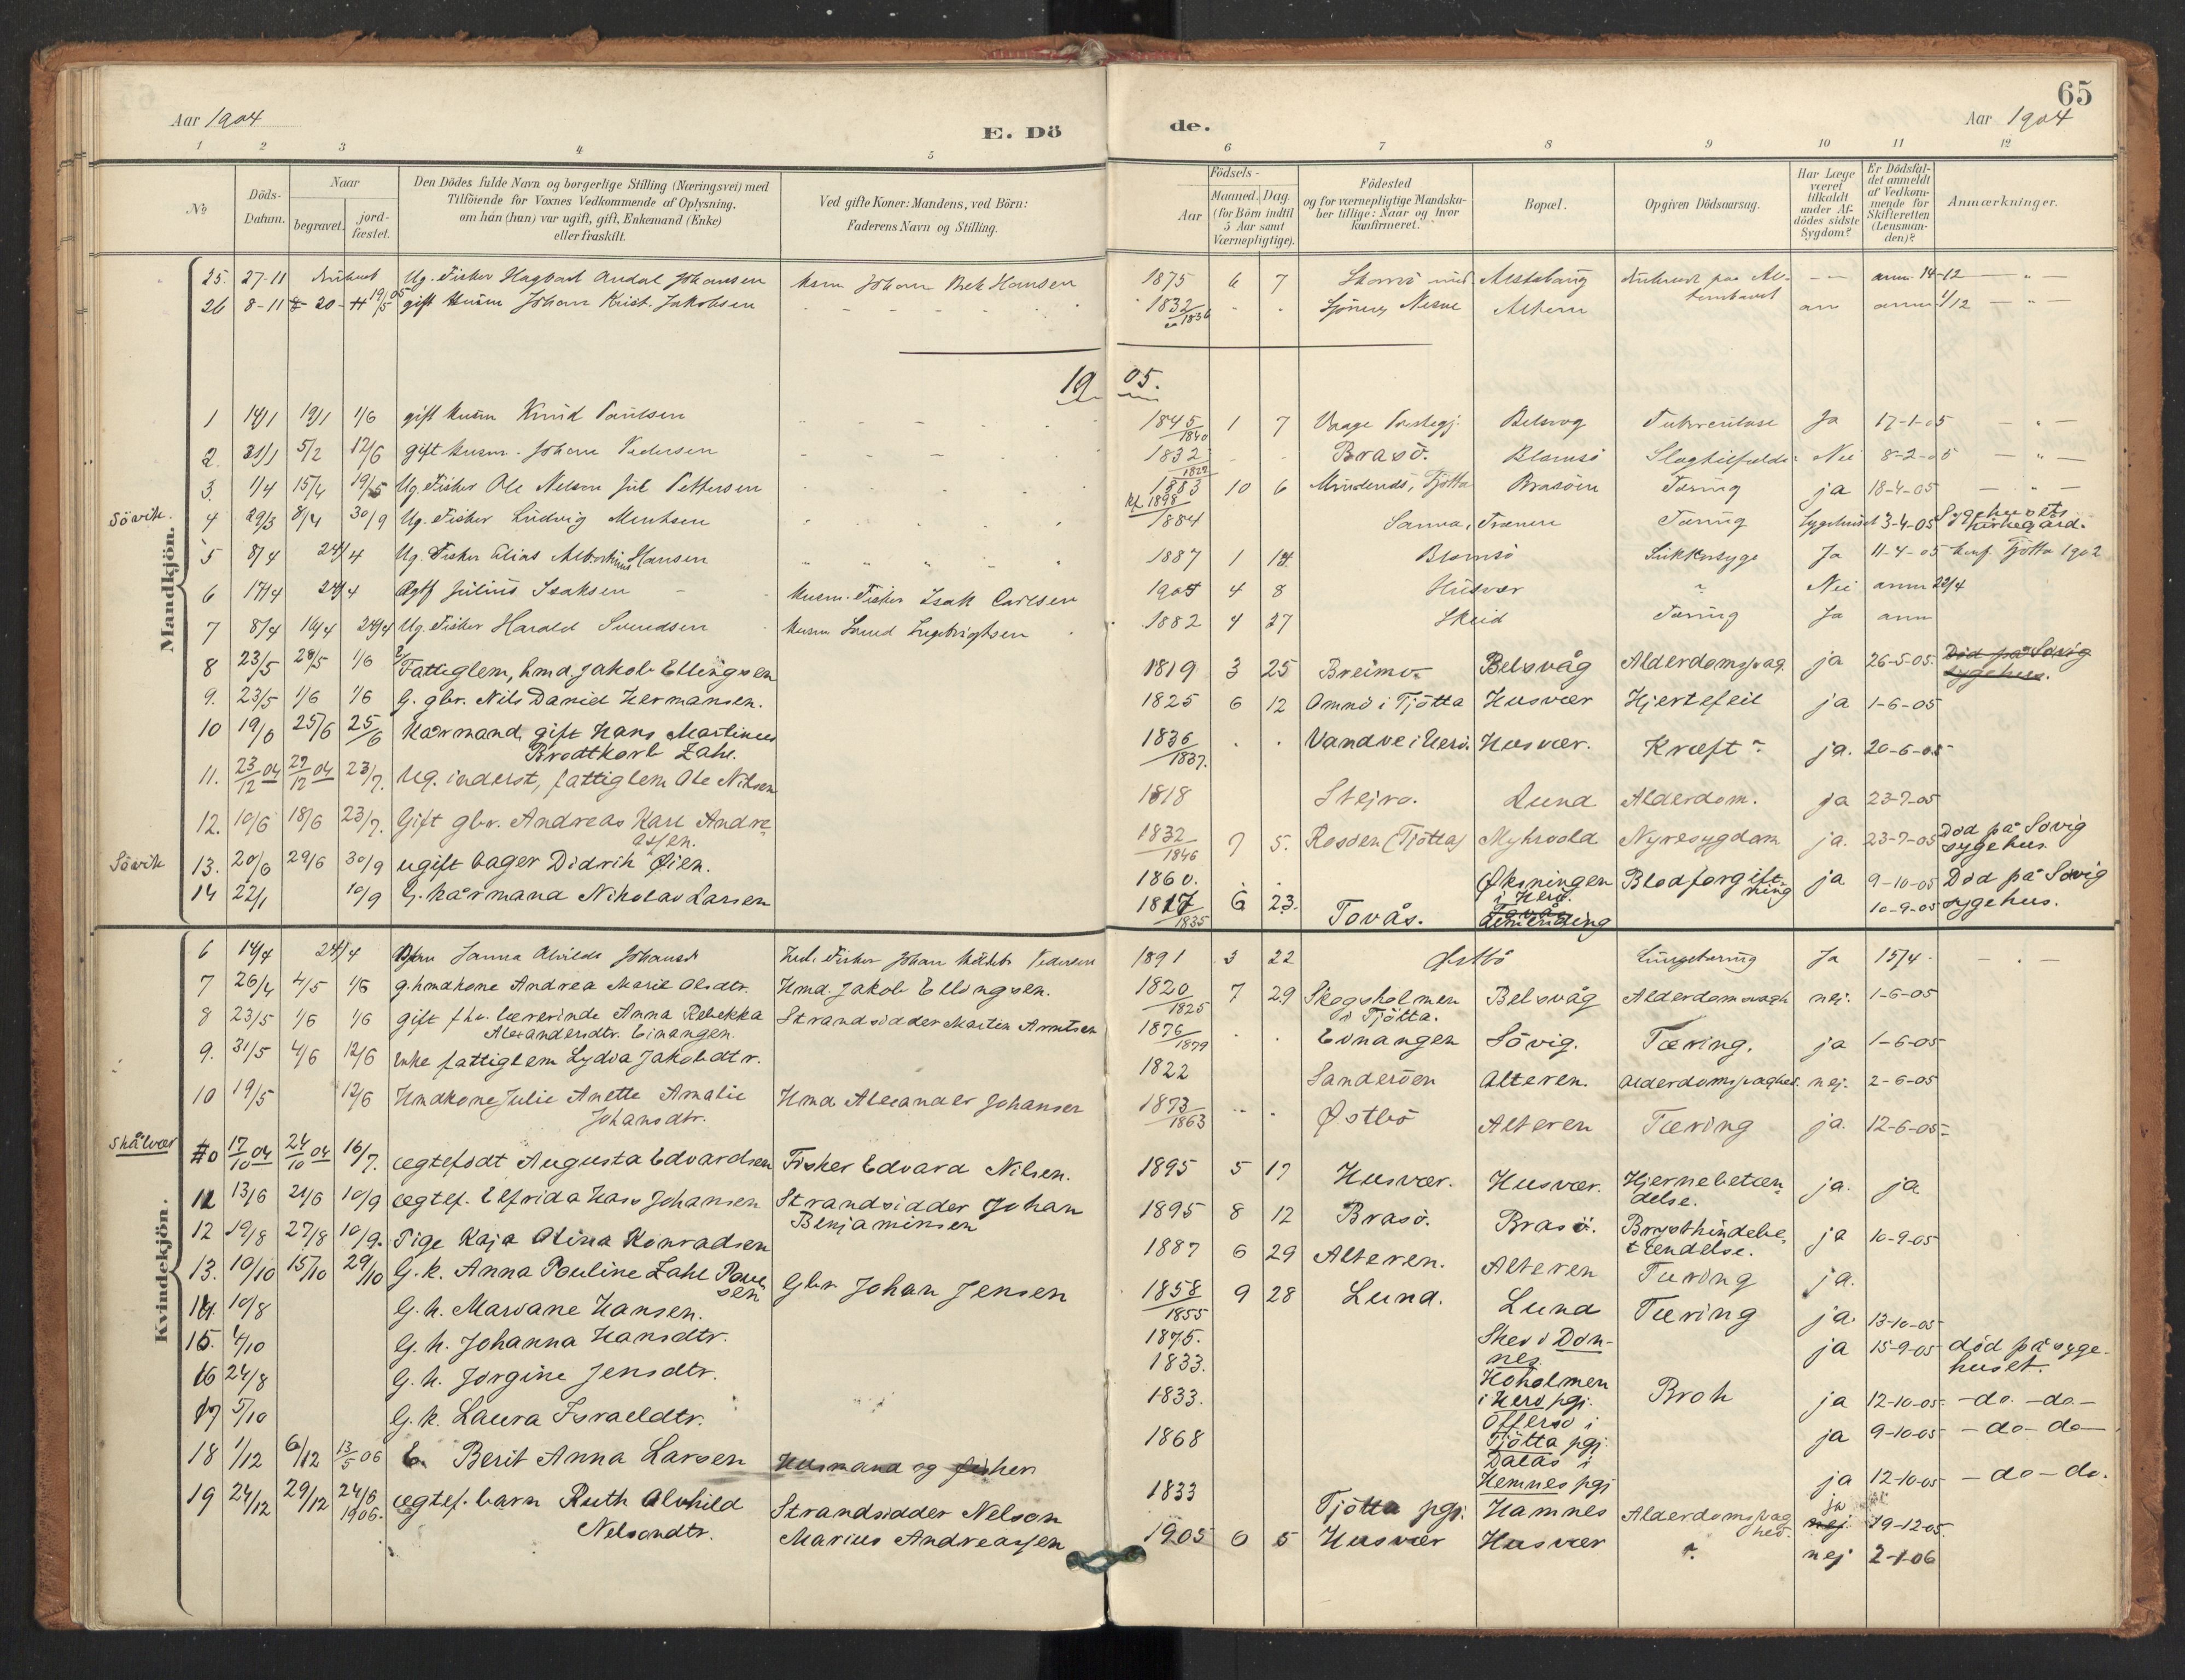 65
Aar 1904
E. Döde.
Aar 1904
1 2 3 4 5 6 7 8 9 10 11 12
No
Döds-Datum.
Naar
begravet.
jordfæstet.
Den Dödes fulde Navn og borgerlige Stilling (Næringsvei) med
Tilföiende for Voxnes Vedkommende af Oplysning,
om hân (hun) var ugift, gift, Enkemand (Enke)
eller fraskilt.
Ved gifte Koner: Mandens, ved Börn:
Faderens Navn og Stilling.
Födsels-
Aar
Maaned. Dag.
(for Börn indtil
5 Aar samt
Værnepligtige).
Födested
og for værnepligtige Mandska-
ber tillige: Naar og hvor
konfirmeret.
Bopæl.
Opgiven Dödsaarsag.
Har Læge
været
tilkaldt
under Af-
dödes sidste
Sygdom?
Er Dödsfal-
det anmeldt
af Vedkom-
mende for
Skifteretten
(Lensman-
den)?
Anmærkninger.
Mandkjön.
25. 27-11 Ug. Fisker Hagbart Andal Johansen 1875 6 7 Alstahaug anm 14-12
26 8-11 20- 19/5 05 gift Husm Johan Krist. Jakobsen 1832 1836 Nesne Altern anm 1/12
1905.
1 14/1 19/1 1/6 gift husm Knud Paulsen 1845 1840 1 7 Vaage Belsvog Tuberculose Ja 17-1-05
2. 31/1 5/2 12/6 gift husm. Johan Pedersen 1832 1822 Brasö. Blomsö Slagtilfælde Nei 8-2-05
3. 1/4 15/4 19/5 Ug. Fisker Ole Nelson Jul Pettersen 1883 kf. 1898 10 6 Mindenes, Tjötta Brasöen Tæring ja 18-4-05
Sövik. 4 29/3 8/4 30/9 Ug. Fisker Ludvig 1884 Sanna, Trænen Tæring Sygehuset 3-4-05 Sygehusets kirkegård.
5 8/4 24/4 Ug. Fisker Elias Hansen 1887 1 14 Blomsö Sukkersyge Ja 11-4-05 konf. Tjötta 1902
6 17/4 24/4 Julius Isaksen Husm. Fisker Isak Carlsen 1905 4 8 Husvær ? Nei anm 22/4
7 8/4 16/4 24/4 Ug. Fisker Harald Svendsen Husm Ingebrigtsen 1882 4 27 Skeid Tæring Ja anm
8 23/5 28/5 1/6 Fattiglem, hmd. Jakob Ellingsen 1819 3 25 Breimo Belsvåg Alderdomssvag. ja 26-5-05. Död på Sövig sygehus.
9. 23/5 1/6 1/6 G. gbr. Nils Daniel Hermansen. 1825 6 12 Omnö i Tjötta Husvær Hjertefeil ja 1-6-05
10 19/6 25/6 25/6 Kårmand, gift Hans Martinus
Brodtkorb Zahl. 1836 1837. Vandve i Herö. Husvær. Kræft? ja. 20-6-05
11. 23/12 04 29/12 04 23/7. Ug. inderst, fattiglem Ole Nilsen 1818 Steiro. Lund Alderdom. ja 23-7-05
12. 10/6 18/6 23/7. Gift gbr. Andreas Karl Andre
assen. 1832 1846 7 5. Rosöen (Tjötta) Myhrvold Nyresygdom ja. 23-7-05 Död på Sövig sygehus.
Sövik 13. 20/6 29/6 30/9 ugift bager Didrik Öien. 1860. Øksningen i Herö. Blodforgiftning ja 9-10-05 Död på Sövig sygehus.
14 22/1 10/9 G. kårmand Nikolai Larsen 1817 1835 6 23. Tovås. 10-9-05
Kvindekjön.
6 14/4 24/4 Janna Alvilde Fisker Johan Pedersen 1891 3 22 Østbö Lungetæring Ja 15/4
7 26/4 4/5 1/6 g. hmdkone Andrea Marie Olsdtr. Hmd. Jakob Ellingsen. 1820 1825 7 29 Skogsholmen i Tjötta. Belsvåg Alderdomssvagh nej. 1-6-05
8 23/5 1/6 1/6 gift fhv. lærerinde Anna Rebekka
Alexandersdtr. Einangen. Strandsidder Martin Arntsen 1876 1879 Einangen Sövig. Tæring. ja 1-6-05
9. 31/5 4/6 12/6 Enke fattiglem Lydia Jakobdtr. 1822 Sanderöen Alteren. Alderdomssvaghed. nej. 2-6-05
10 19/5 12/6 Hmdkone Julie Anette Amalie
Johansdtr. Hmd Alexander Johansen 1873 1863 Østbö Alteren Tæring ja. 12-6-05
Skålvær 10 17/10 04 24/10 04 16/7. ægtefödt Augusta Edvardsen Fisker Edvard Nilsen. 1895 5 17 Husvær. Husvær. Hjernebetæn
delse. ja. ja
11 13/6 21/6 10/9 ægtef. Elfrida Johansen Strandsidder Johan
Benjaminsen 1895 8 12 Brasö. Brasö. Brysthindebe
tændelse. ja 10-9-05
12 19/8 27/8 10/9. Pige Kaja Olina Konradsen 1887 6 29 Alteren. Alteren Tæring ja.
13. 10/10 15/10 29/10 G. k. Anna Pauline Zahl Povel
sen Gbr Johan Jensen 1858 1855 9 28 Lund. Lund Tæring ja. 13-10-05
14. 10/8 G. k. Mariane Hansen. 1875. i Dön-
nes ja 15-9-05 död på syge-
huset.
15. 4/10 G. k. Johanna Hansdtr. 1833. Hoholmen
i Herö pgj. Brok ja 12-10-05 -do. -do-
16 24/8 G. k. Jorgine Jensdtr. 1833. Offersö i
Tjötta pgj. ja 9-10-05 -do-do-
17 5/10 G. k. Laura Israeldtr. 1868 Dalås i
Hemnes pgj ja 12-10-05 -do-do.
18 1/12 6/12 13/5 06 E. Berit Anna Larsen Husmand og fisker 1833 Tjötta pgj. Hamnes Alderdomssvag
hed. ja nej 19-12-05.
19 24/12 29/12 24/6
1906. ægtef. barn Ruth Alvhild
Nelsondtr. Strandsidder Nelson
Marius Andreassen 1905 6 5 Husvær Husvær ?. nej 2-1-06